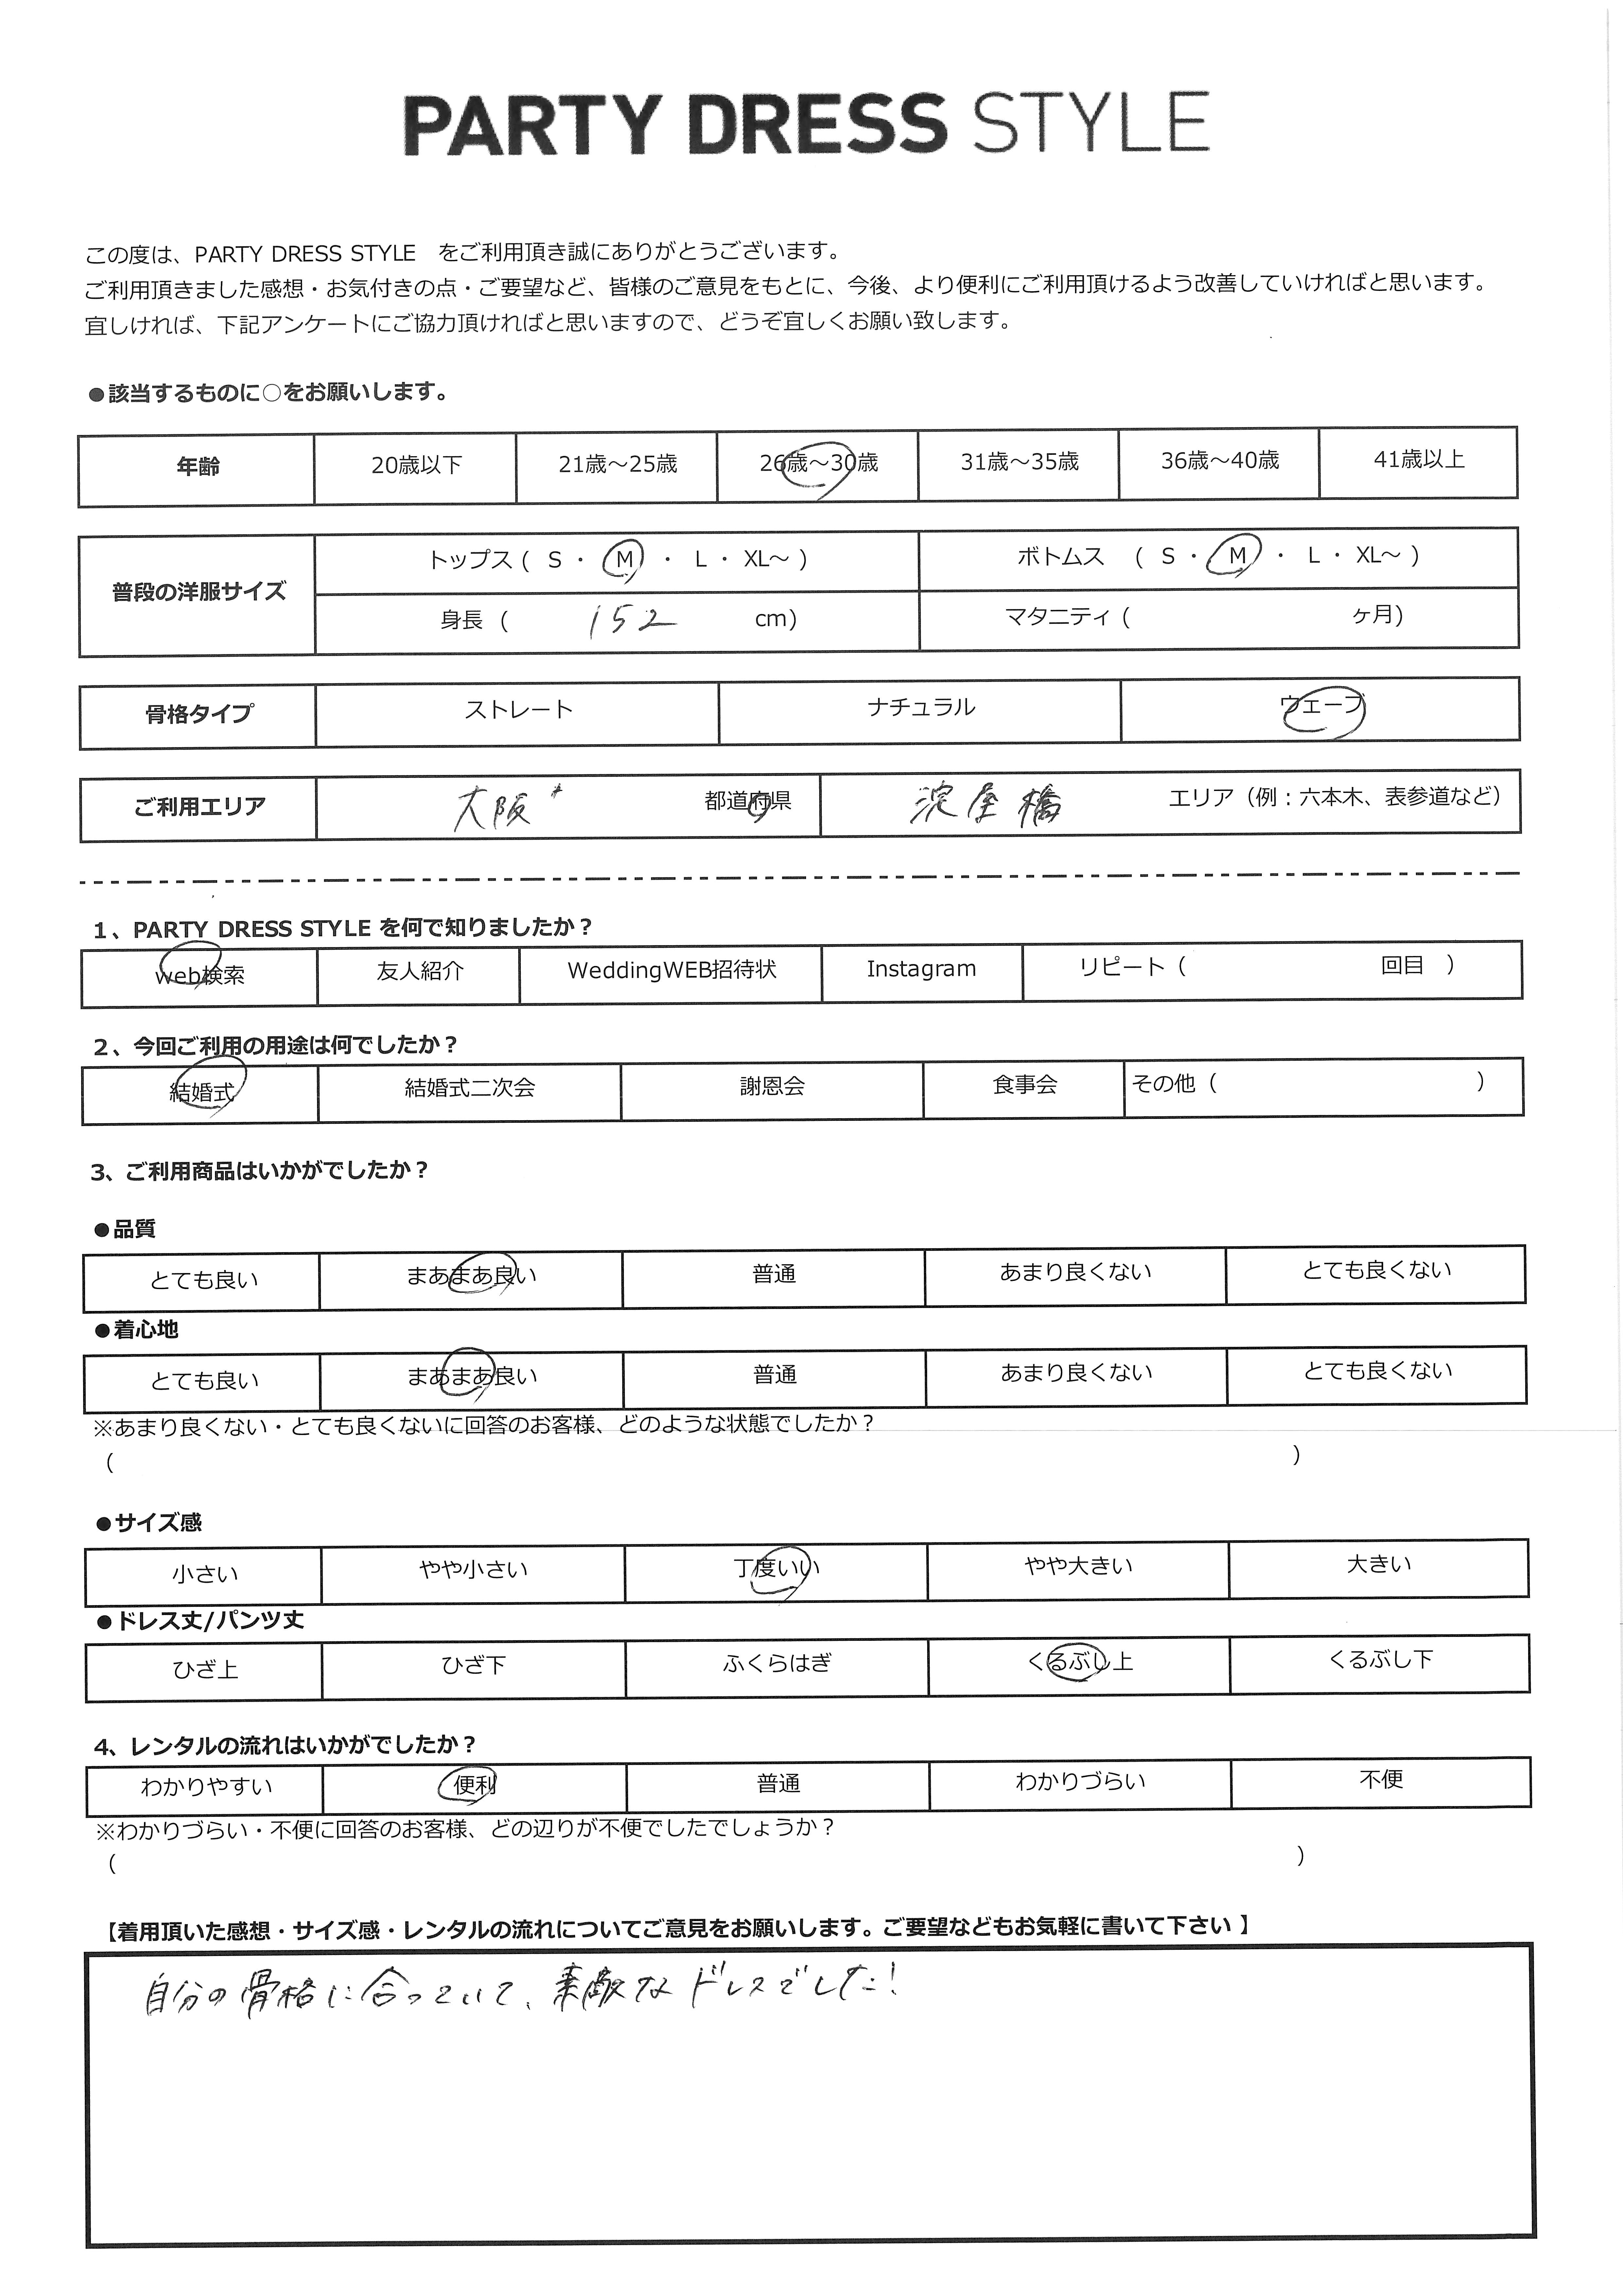 PARTY DRESS STYLE
この度は、PARTY DRESS STYLE　をご利用頂き誠にありがとうございます。
ご利用頂きました感想・お気付きの点・ご要望など、皆様のご意見をもとに、今後、より便利にご利用頂けるよう改善していければと思います。
宜しければ、下記アンケートにご協力頂ければと思いますので、どうぞ宜しくお願い致します。
●該当するものに○をお願いします。
年齢 20歳以下 21歳～25歳 26歳～30歳 31歳～35歳 36歳～40歳 41歳以上
普段の洋服サイズ トップス（ S ・ M ・ L ・ XL～ ） ボトムス （ S ・ M ・ L ・ XL～ ）
身長（ 152 cm） マタニティ（ ヶ月）
骨格タイプ ストレート ナチュラル ウェーブ
ご利用エリア 大阪 都道府県 淀屋橋 エリア（例：六本木、表参道など）
1、PARTY DRESS STYLE を何で知りましたか？
web検索 友人紹介 WeddingWEB招待状 Instagram リピート（ 回目 ）
2、今回ご利用の用途は何でしたか？
結婚式 結婚式二次会 謝恩会 食事会 その他（ ）
3、ご利用商品はいかがでしたか？
●品質
とても良い まあまあ良い 普通 あまり良くない とても良くない
●着心地
とても良い まあまあ良い 普通 あまり良くない とても良くない
※あまり良くない・とても良くないに回答のお客様、どのような状態でしたか？
（ ）
●サイズ感
小さい やや小さい 丁度いい やや大きい 大きい
●ドレス丈/パンツ丈
ひざ上 ひざ下 ふくらはぎ くるぶし上 くるぶし下
4、レンタルの流れはいかがでしたか？
わかりやすい 便利 普通 わかりづらい 不便
※わかりづらい・不便に回答のお客様、どの辺りが不便でしたでしょうか？
（ ）
【着用頂いた感想・サイズ感・レンタルの流れについてご意見をお願いします。ご要望などもお気軽に書いて下さい 】
自分の骨格に合っていて、素敵なドレスでした！